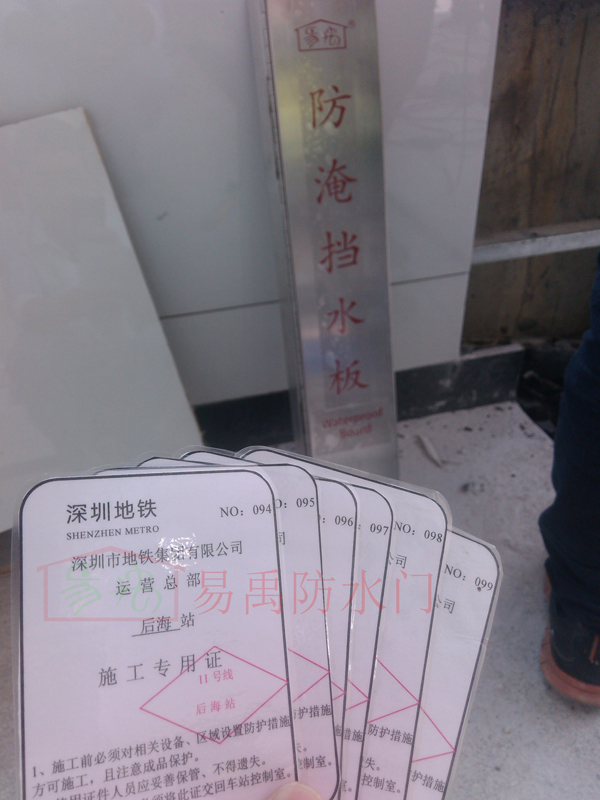 易禹®
防淹挡水板
Waterproof
Board
深圳地铁
SHENZHEN METRO
NO：094
深圳市地铁集团有限公司
运营总部
后海站
施工专用证
11号线
后海站
1、施工前必须对相关设备、区域设置防护措施
方可施工，且注意成品保护。
使用证件人员应妥善保管、不得遗失。
必须将此证交回车站控制室。
易禹防水门
O：095
司
防护措施
失。
控制室。
096
097
NO：098
公司
防护措施
失。
控制室。
NO：099
公司
护措施